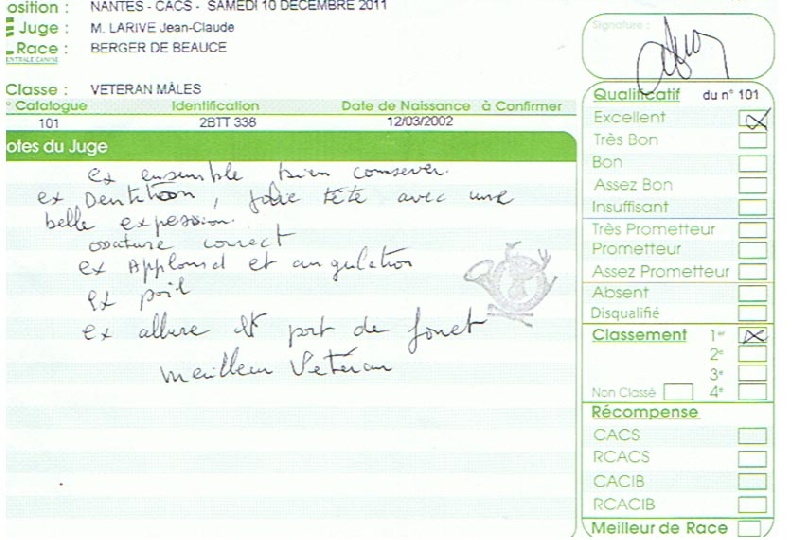 osition : NANTES - CACS - SAMEDI 10 DECEMBRE 2011
Juge : M. LARIVE Jean-Claude
Race : BERGER DE BEAUCE
CENTRALE CANINE
Signature :
Classe : VETERAN MÂLES
° Catalogue Identification Date de Naissance à Confirmer
101 2BTT 336 12/03/2002
otes du Juge
ex ensemble bien conserver.
ex Dentition, jolie tête avec une
belle expession.
ossature correct
ex Applomd et angulation
ex poil
ex allure et port de fouet
Meilleur Vétéran
Qualificatif du n° 101
Excellent
Très Bon
Bon
Assez Bon
Insuffisant
Très Prometteur
Prometteur
Assez Prometteur
Absent
Disqualifié
Classement 1er
2e
3e
Non Classé 4e
Récompense
CACS
RCACS
CACIB
RCACIB
Meilleur de Race